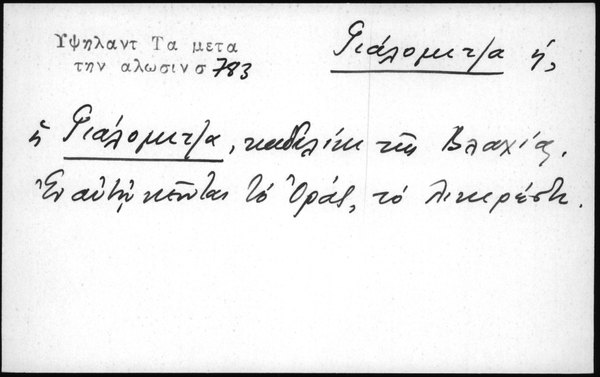 Υψηλαντ Τα μετα
την αλωσιν σ 783
Γιάλομιτζα ἡ,
ἡ Γιάλομιτζα, καδιλίκι τῆς Βλαχίας.
Ἐν αὐτῇ κεῖνται τὸ Ὀράς, τὸ